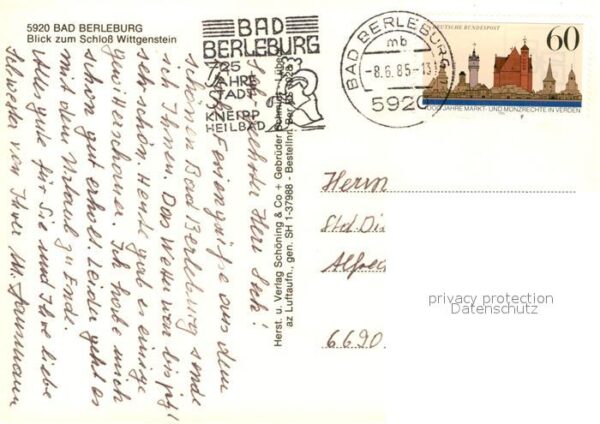 5920 BAD BERLEBURG
Blick zum Schloß Wittgenstein
BAD
BERLEBURG
725
JAHRE
STADT
KNEIPP
HEILBAD
BAD BERLEBURG
mb
-8.6.85-13
5920
DEUTSCHE BUNDESPOST
60
1000 JAHRE MARKT- UND MÜNZRECHTE IN VERDEN
Herst. u. Verlag Schöning & Co + Gebrüder Schmidt,
az Luftaufn., gen. SH 1-37988 - Bestellnr.
Herr
Feriengrüße aus dem
schönen Bad Berleburg sende
ich Ihnen. Das Wetter war bis jetzt
sehr schön. Heute gab es einige
Gewitterschauer. Ich habe mich
schon gut erholt. Leider geht es
mit dem Urlaub zu Ende.
Alles gute für Sie und Ihre liebe
Schwester von Ihrer M.
Herrn
Std. Di
Alfred
6690
privacy protection
Datenschutz